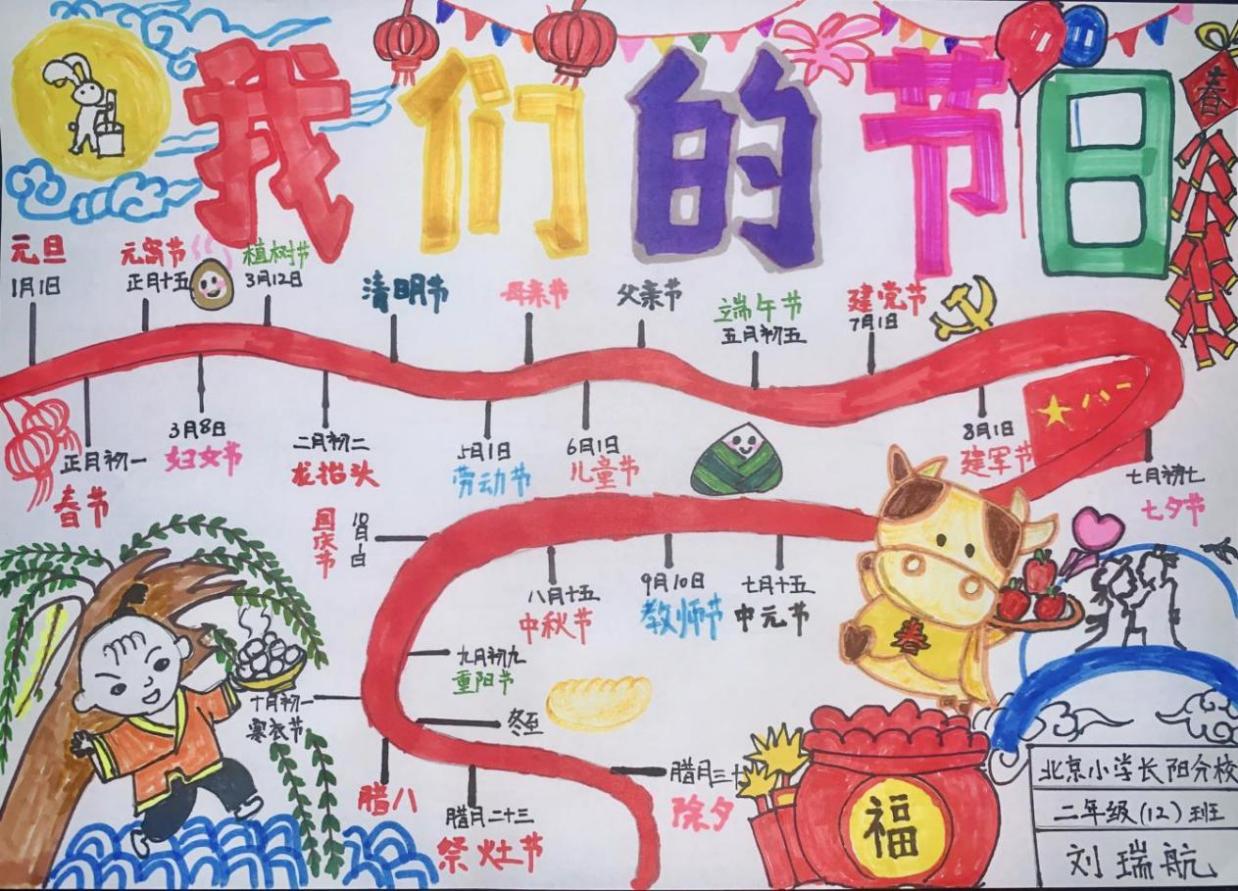 我们的节日
春
元旦
1月1日
元宵节
正月十五
植树节
3月12日
清明节
母亲节
父亲节
端午节
五月初五
建党节
7月1日
正月初一
春节
3月8日
妇女节
二月初二
龙抬头
5月1日
劳动节
6月1日
儿童节
8月1日
建军节
八一
七月初七
七夕节
国庆节
10月1日
八月十五
中秋节
9月10日
教师节
七月十五
中元节
九月初九
重阳节
十月初一
寒衣节
冬至
腊八
腊月二十三
祭灶节
腊月三十
除夕
春
福
北京小学长阳分校
二年级(12)班
刘瑞航